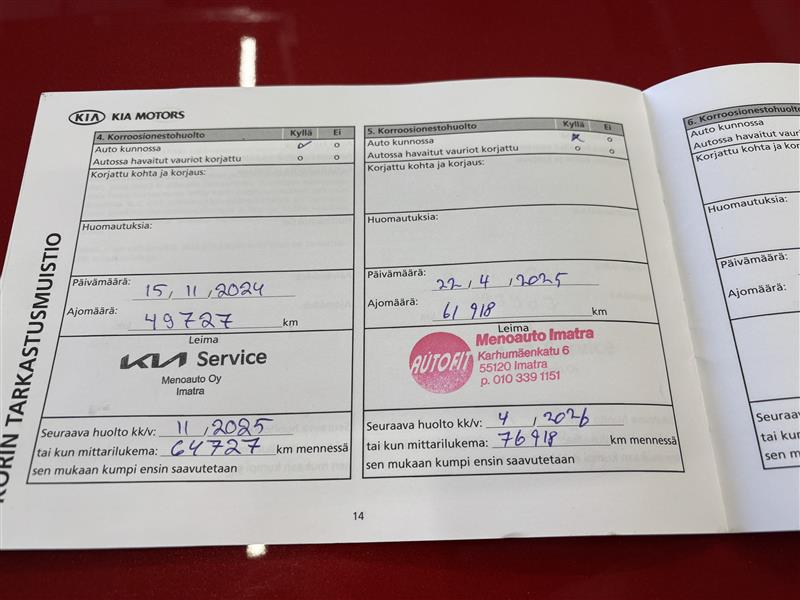 KIA KIA MOTORS
KORIN TARKASTUSMUISTIO
4. Korroosionestohuolto Kyllä Ei
Auto kunnossa
Autossa havaitut vauriot korjattu
Korjattu kohta ja korjaus:
Huomautuksia:
Päivämäärä: 15, 11, 2024
Ajomäärä: 49727 km
Leima
KIA Service
Menoauto Oy
Imatra
Seuraava huolto kk/v: 11, 2025
tai kun mittarilukema: 64727 km mennessä
sen mukaan kumpi ensin saavutetaan
5. Korroosionestohuolto Kyllä Ei
Auto kunnossa
Autossa havaitut vauriot korjattu
Korjattu kohta ja korjaus:
Huomautuksia:
Päivämäärä: 22, 4, 2025
Ajomäärä: 61 918 km
Leima
AUTOFIT
Menoauto Imatra
Karhumäenkatu 6
55120 Imatra
p. 010 339 1151
Seuraava huolto kk/v: 4, 2026
tai kun mittarilukema: 76918 km mennessä
sen mukaan kumpi ensin saavutetaan
14
6. Korroosionestohuolto
Auto kunnossa
Autossa havaitut vauriot
Korjattu kohta ja korjaus:
Huomautuksia:
Päivämäärä:
Ajomäärä:
Seuraava huolto
tai kun mittarilukema:
sen mukaan kumpi